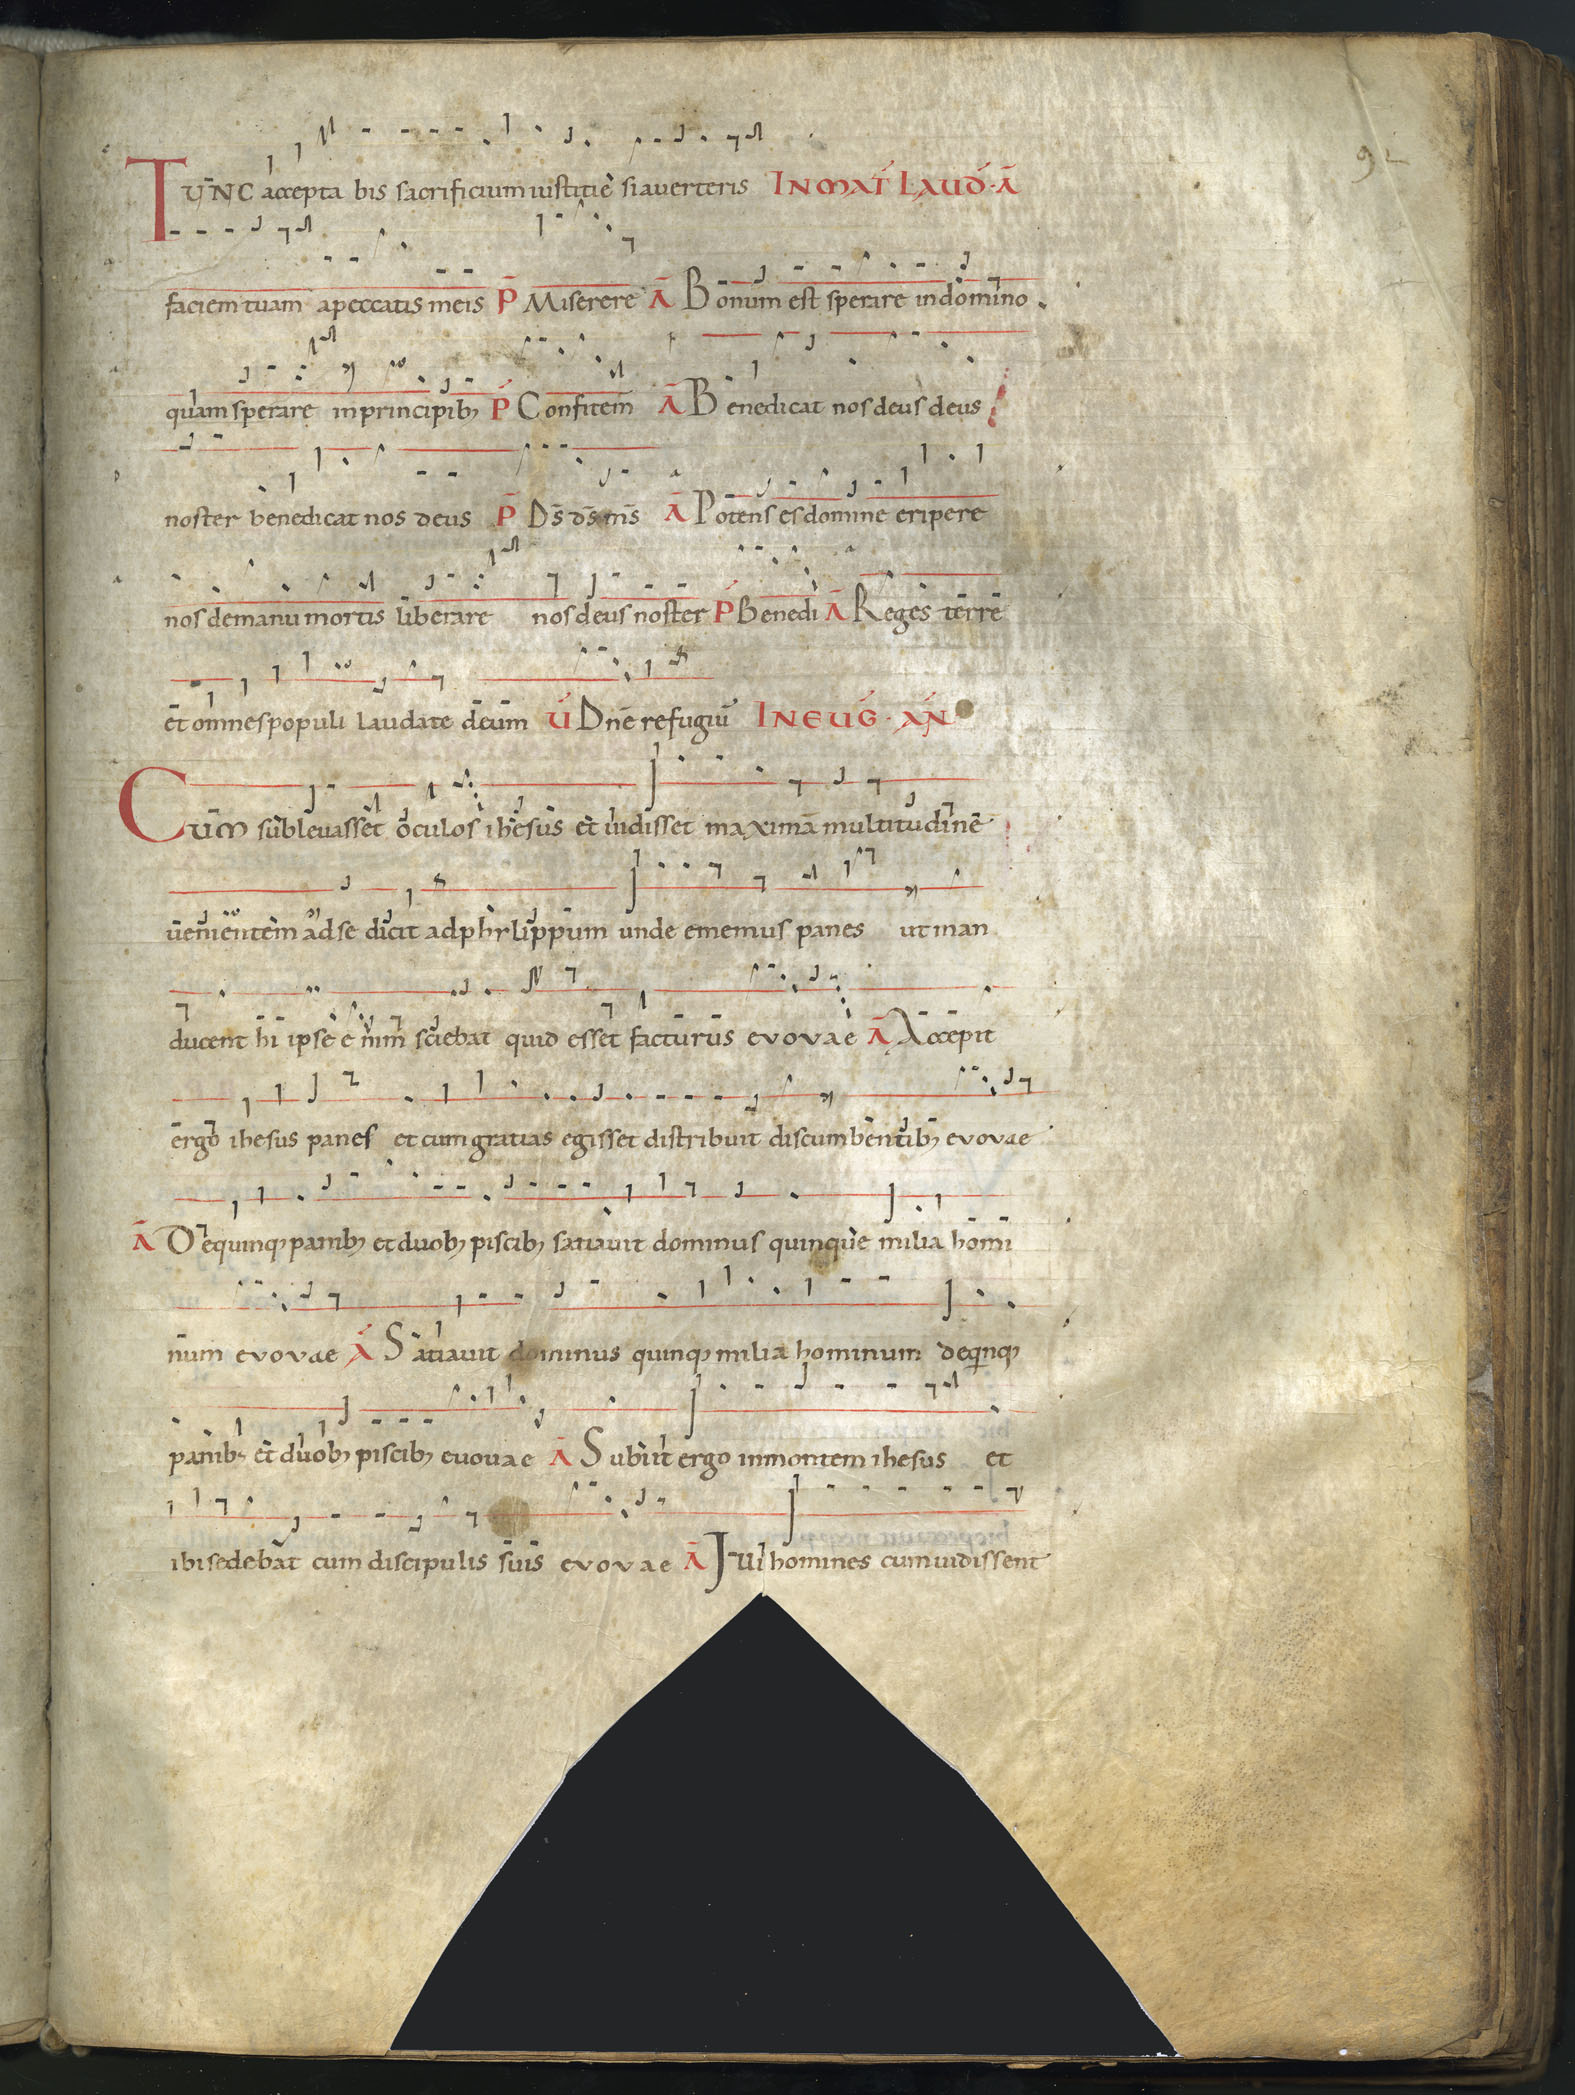 92
TUNC acceptabis sacrificium iustitię si averteris IN MAT LAUD · A
faciem tuam a peccatis meis P Miserere A Bonum est sperare in domino
quam sperare in principib; P Confitem A Benedicat nos deus deus
noster benedicat nos deus P Ds ds ms A Potens es domine eripere
nos de manu mortis liberare nos deus noster P Benedi A Reges terrę
et omnes populi laudate deum V Dne refugiū IN EUG · AN
CUM sublevasset oculos ihesus et vidisset maximā multitudinē
venientem ad se dicit ad phylippum unde ememus panes ut man
ducent hi ipse enim sciebat quid esset facturus evovae A Accepit
ergo ihesus panes et cum gratias egisset distribuit discumbentib; evovae
A De quinq; panib; et duob; piscib; satiavit dominus quinque milia homi
num evovae A Satiavit dominus quinq; milia hominum de qinq;
panib; et duob; piscib; evovae A Subiit ergo in montem ihesus et
ibi sedebat cum discipulis suis evovae A Illi homines cum vidissent